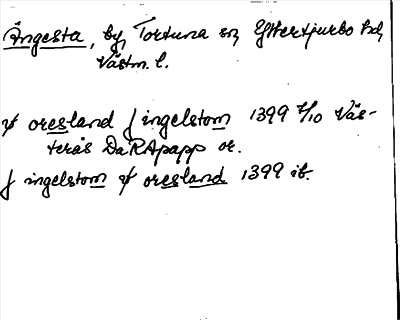 Ängesta, by, Tortuna sn, Yttertjurbo hd,
Västm. l.
oresland j ingelstom 1399 2/10 Väs-
terås DaRApapp or.
j ingelstom oresland 1399 ib.